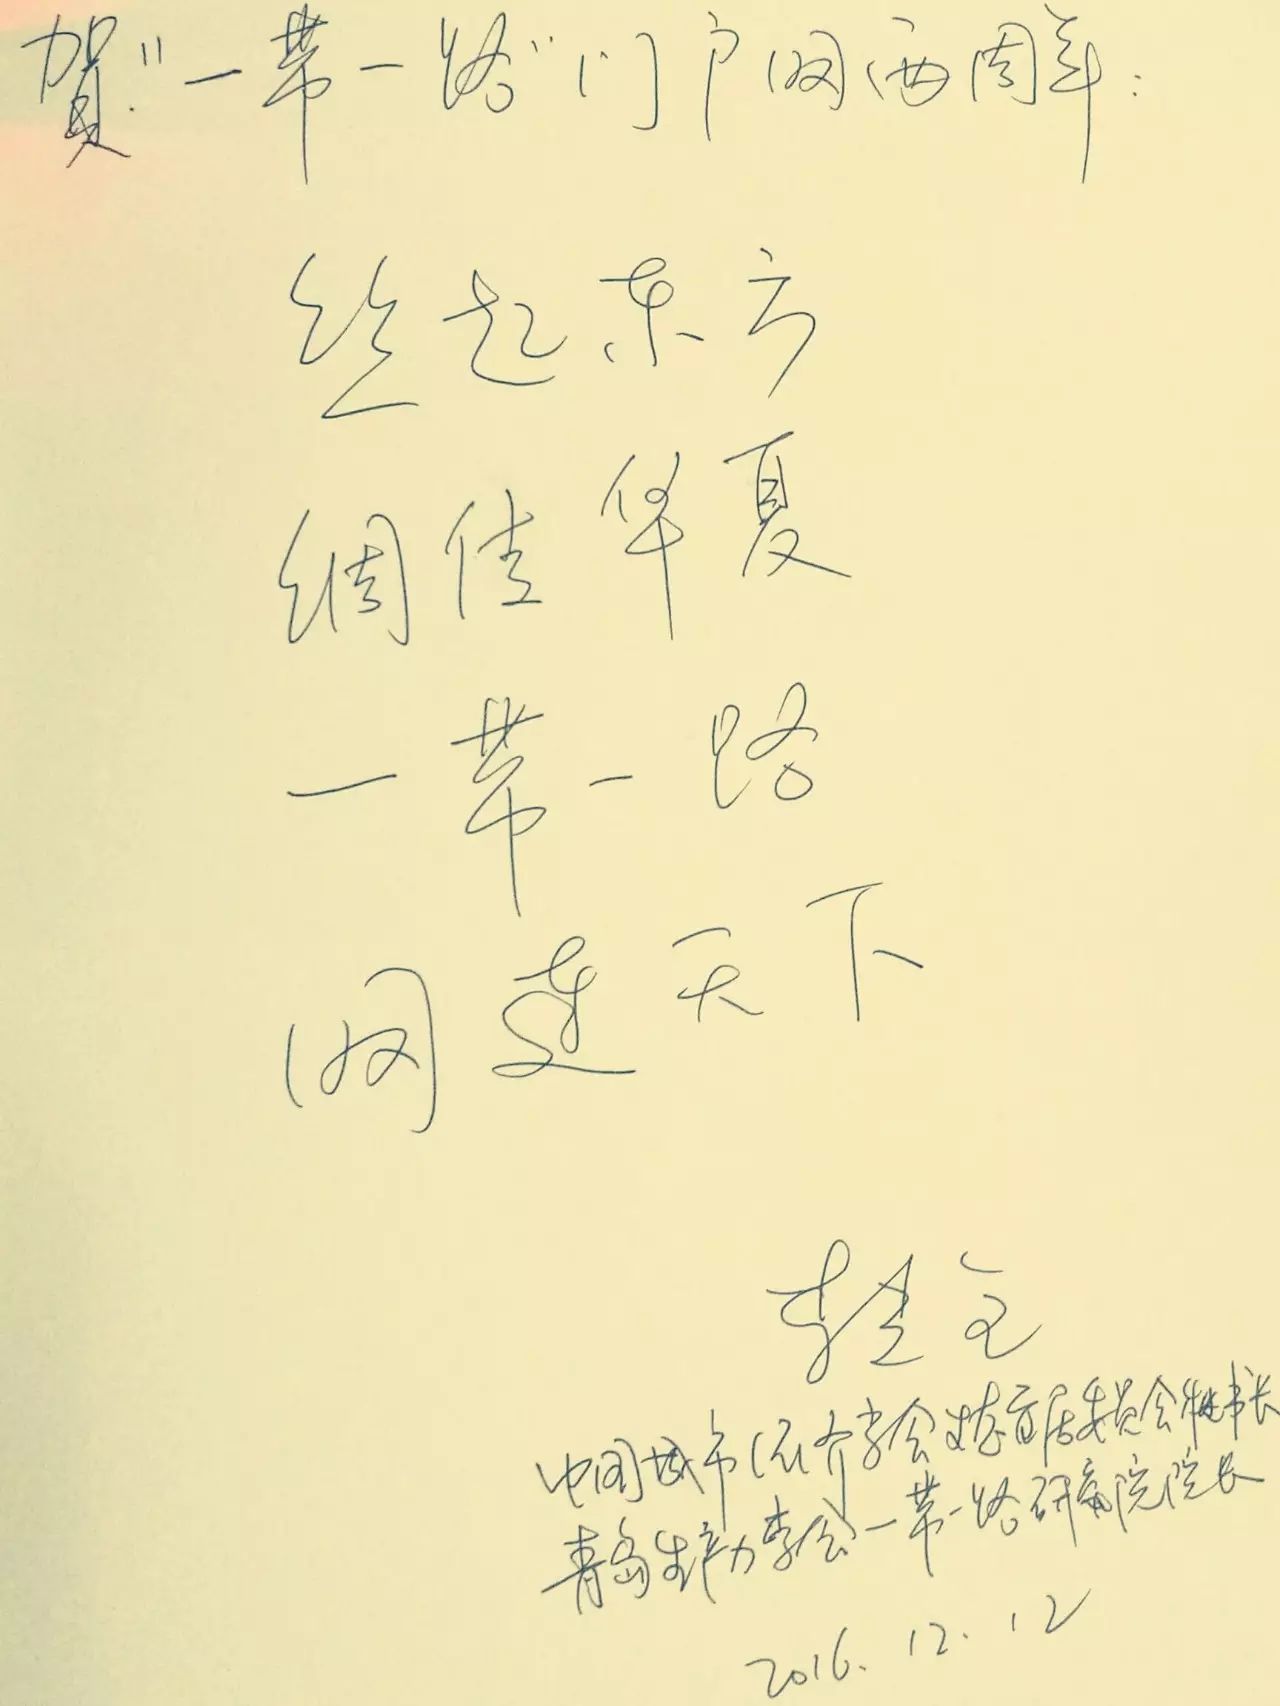 贺"一带一路"门户网两周年:
丝起东方
绸佳华夏
一带一路
网连天下
中国城市经济学会 委员会秘书长
青岛生产力学会一带一路研究院院长
2016.12.12